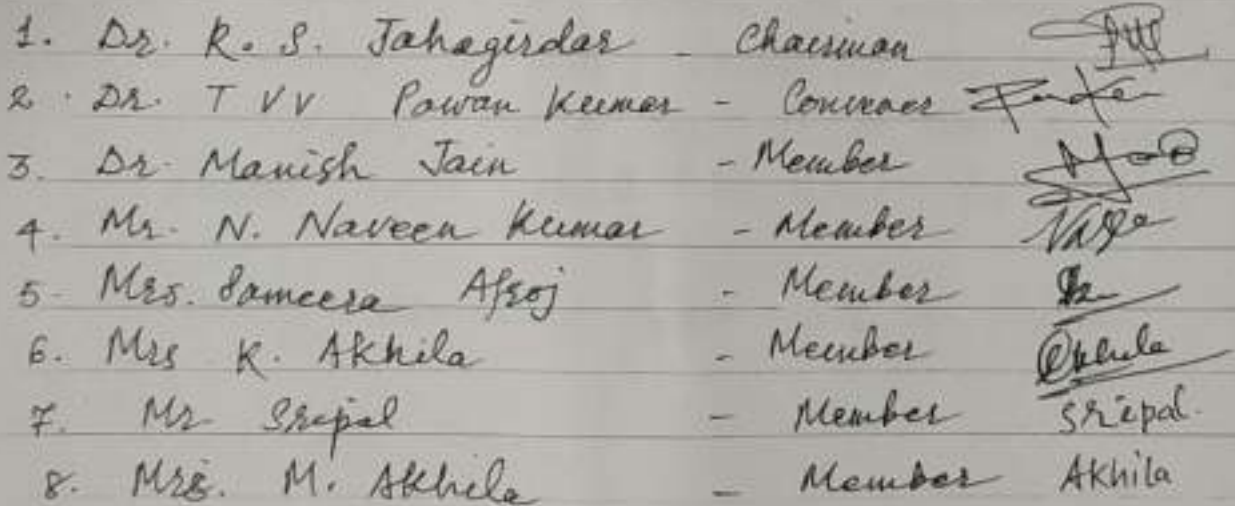 1. Dr. R. S. Jahagirdar - Chairman
2. Dr. T VV Pawan Kumar - Convenor
3. Dr. Manish Jain - Member
4. Mr. N. Naveen Kumar - Member
5. Mrs. Sameera Afroj - Member
6. Mrs K. Akhila - Member Akhila
7. Mr Sripal - Member Sripal.
8. Mrs. M. Akhila - Member Akhila